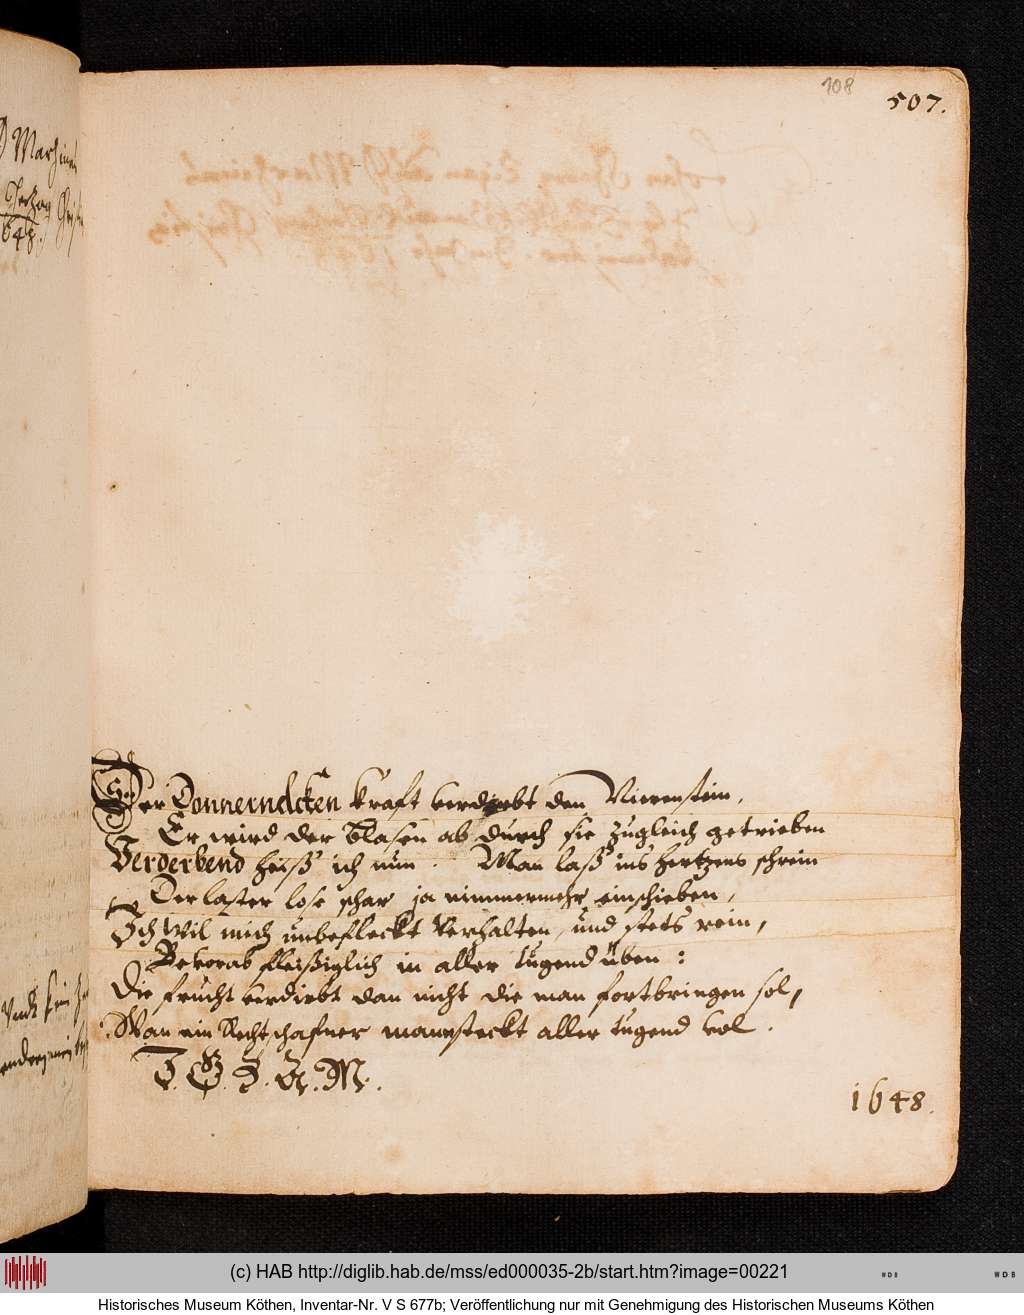 108
507.
Marsinai
Der Donnernelcken kraft verdirbt den Nierenstein,
Er wird der blasen ab durch sie zugleich getrieben
Verderbend heiß ich nun. Man laß ins hertzens schrein
Der laster lose schar ja nimmermehr einschieben,
Ich wil mich unbefleckt verhalten, und stets rein,
Bevorab fleißiglich in aller tugend üben:
Die frucht verdirbt dan nicht die man fortbringen sol,
Wan ein Rechtschafner mann steckt aller tugend vol.
M.
1648.
(c) HAB http://diglib.hab.de/mss/ed000035-2b/start.htm?image=00221
Historisches Museum Köthen, Inventar-Nr. V S 677b; Veröffentlichung nur mit Genehmigung des Historischen Museums Köthen